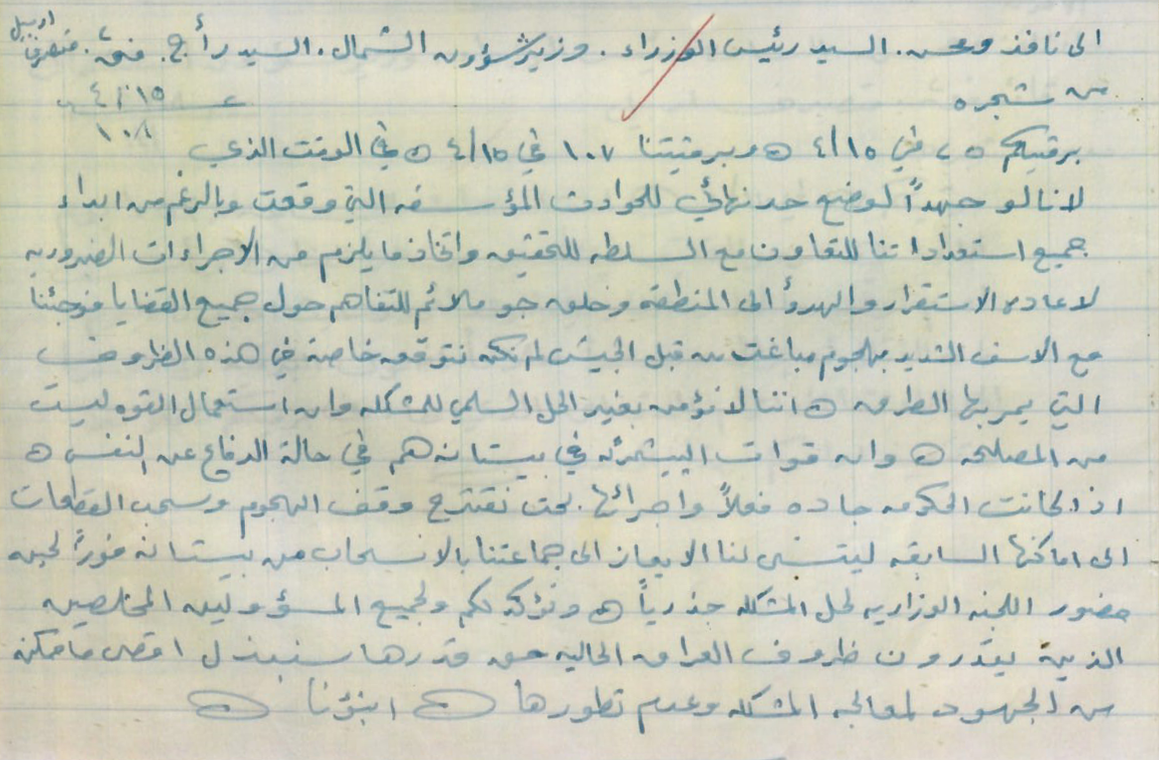 اربيل
الى نافذ ومحسن. السيد رئيس الوزراء. وزير شؤون الشمال. السيد ر أ ج. فق٢.
من شجره
١٥/٤
١٠٨
برقيتكم ٥٠ في ١٥/٤ ٥ وبرقيتنا ١٠٧ في ١٥/٤ ٥ في الوقت الذي
لا نالو جهداً لوضع حد نهائي للحوادث المؤسفه التي وقعت وبالرغم من ابداء
جميع استعداداتنا للتعاون مع السلطه للتحقيق واتخاذ ما يلزم من الاجراءات الضروريه
لاعاده الاستقرار والهدوأ الى المنطقه وخلق جو ملائم للتفاهم حول جميع القضايا فوجئنا
مع الاسف الشديد بهجوم مباغت من قبل الجيش لم نكن نتوقعه خاصة في هذه الظروف
التي يمر بها الطرفه ٥ اننا لا نؤمن بغير الحل السلمي للمشكله وان استعمال القوه ليست
من المصلحه ٥ وان قوات البيشمرگه في بيستانه هم في حالة الدفاع عن النفس ٥
اذا كانت الحكومه جاده فعلاً واجرائها. نحن نقترح وقف الهجوم وسحب القطعات
الى اماكنها السابقه ليتسنى لنا الايعاز الى جماعتنا بالانسحاب من بيستانه فوراً لحين
حضور اللجنه الوزاريه لحل المشكله جذرياً ٥ ونؤكد لكم ولجميع المسؤولين المخلصين
الذين يقدرون ظروف العراق الحاليه حق قدرها سنبذل اقصى ما يمكن
من الجهود لمعالجه المشكله وعدم تطورها ٥ انبؤنا ٥